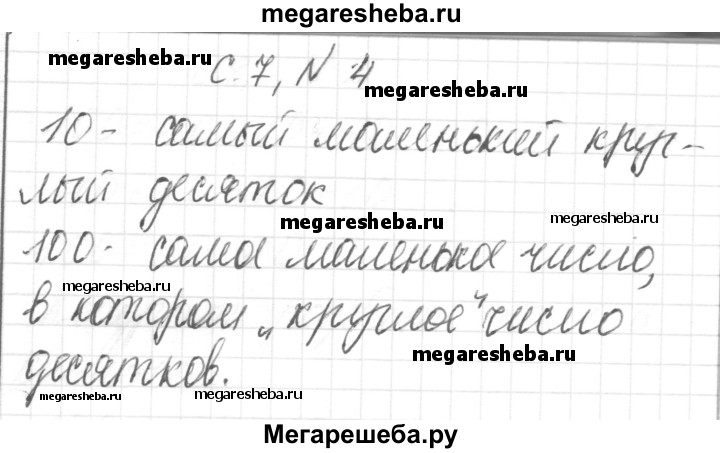 megaresheba.ru
megaresheba.ru
с. 7, N 4
megaresheba.ru
10- самый маленький круг-
лый десяток
megaresheba.ru
megaresheba.ru
100- само маленько число,
megaresheba.ru
в котором „круглое" число
megaresheba.ru
десятков.
megaresheba.ru
megaresheba.ru
Мегарешеба.ру